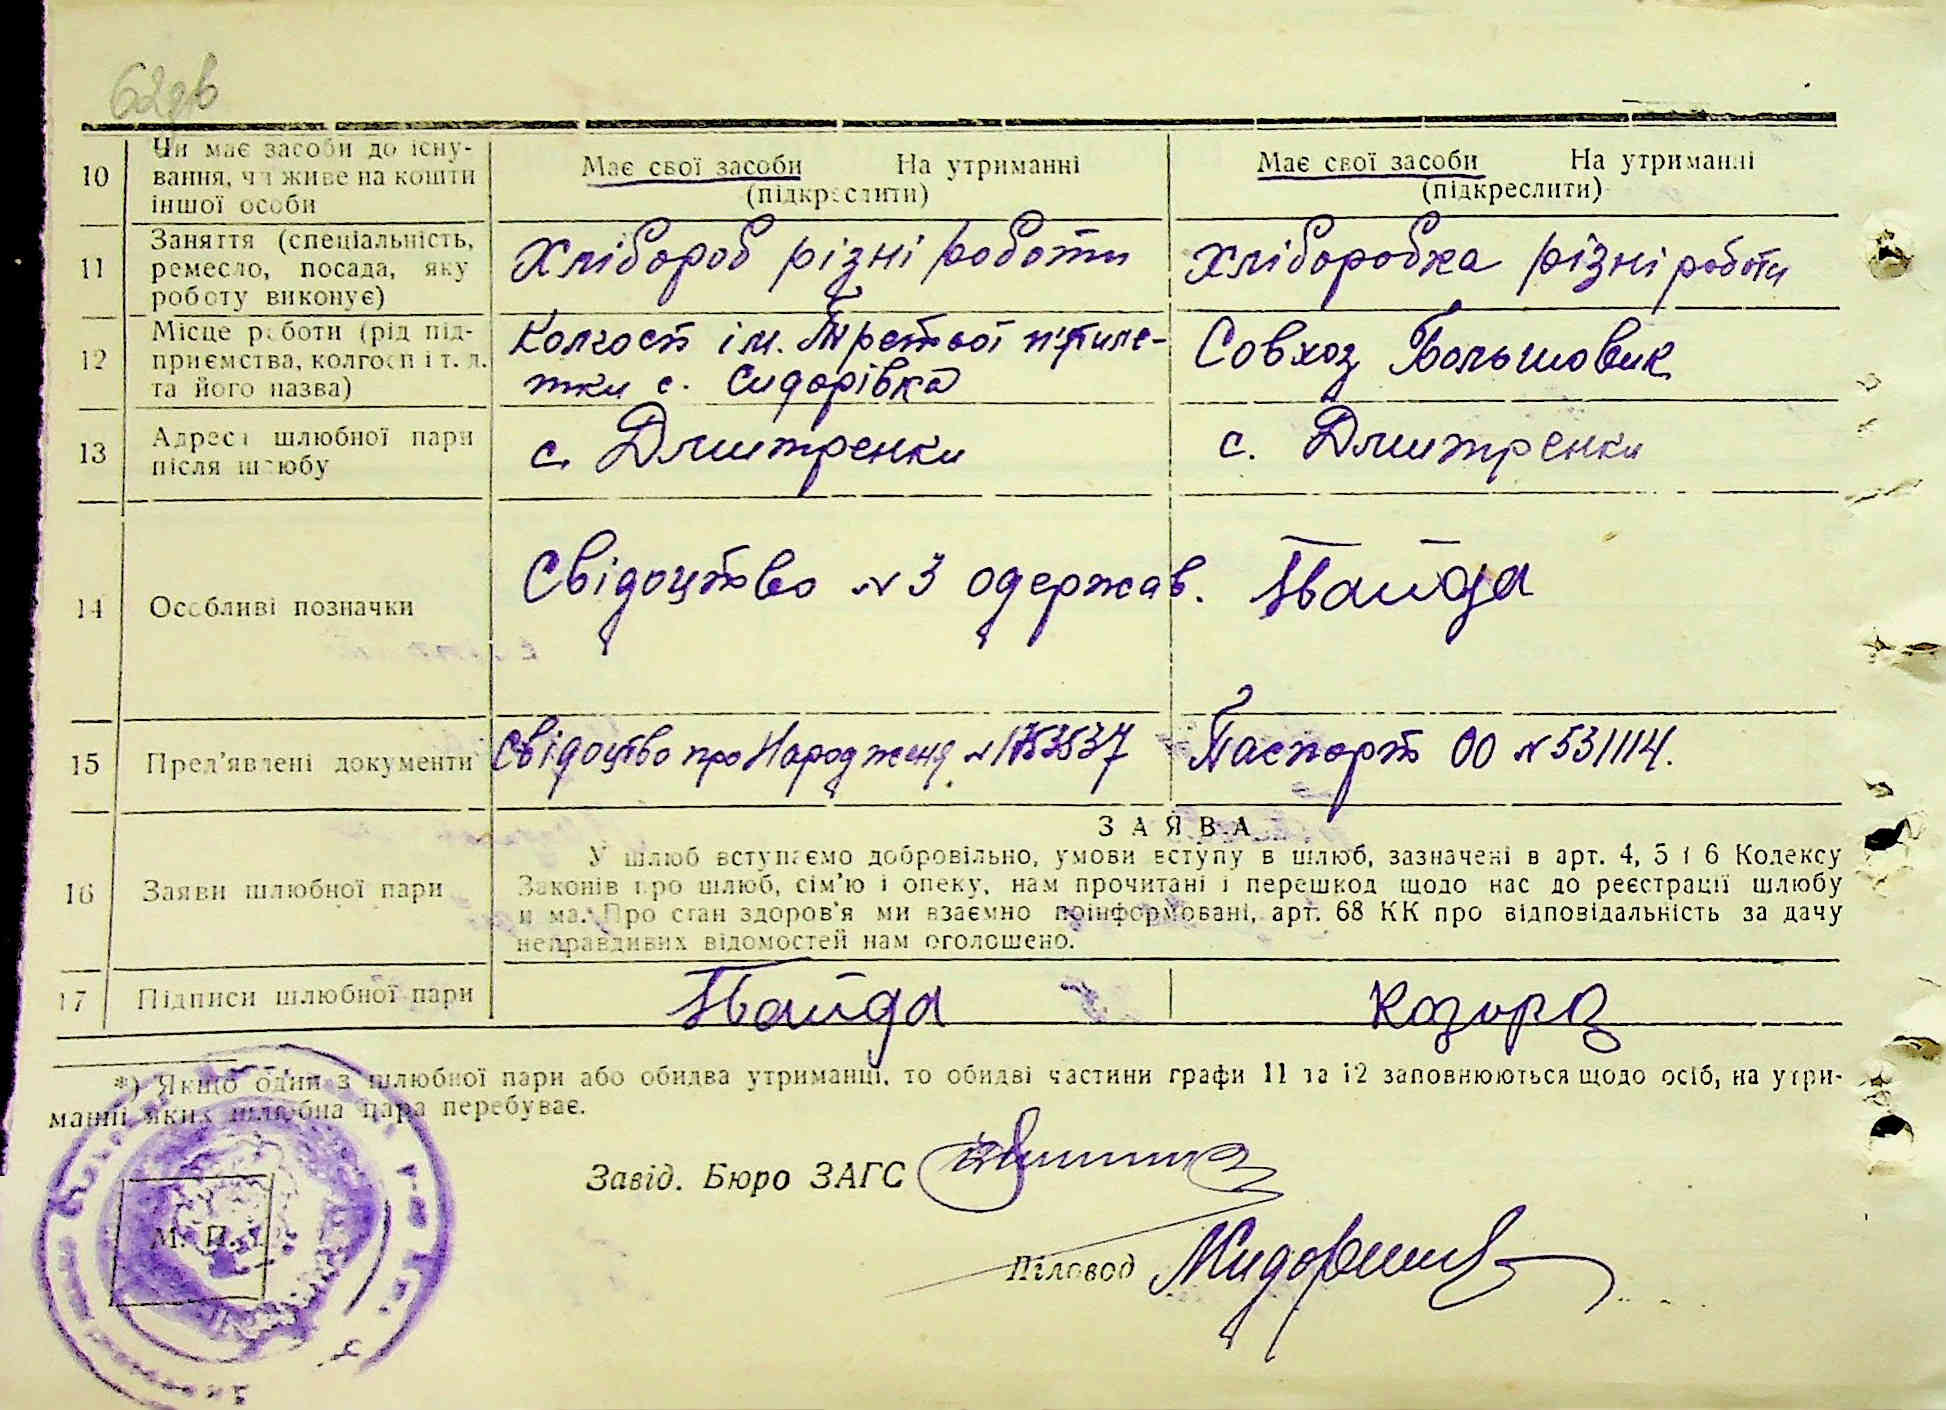 62зв
10 Чи має засоби до існу-
вання, чи живе на кошти
іншої особи
Має свої засоби На утриманні
(підкреслити)
Має свої засоби На утриманні
(підкреслити)
11 Заняття (спеціальність,
ремесло, посада, яку
роботу виконує)
Хлібороб різні роботи
Хліборобка різні роботи
12 Місце роботи (рід під-
приємства, колгосп і т. д.
та його назва)
Колгосп ім. Третьої п'ятиле-
тки с. Сидорівка
Совхоз Большовик
13 Адреса шлюбної пари
після шлюбу
с. Дмитренки
с. Дмитренки
14 Особливі позначки
Свідоцтво №3 одержав. Гайда
15 Пред'явлені документи
Свідоцтво про Народженя №1753537
Паспорт 00 №531114.
16 Заяви шлюбної пари
ЗАЯВА
У шлюб вступаємо добровільно, умови вступу в шлюб, зазначені в арт. 4, 5 і 6 Кодексу
Законів про шлюб, сім'ю і опеку, нам прочитані і перешкод щодо нас до реєстрації шлюбу
немає. Про стан здоров'я ми взаємно поінформовані, арт. 68 КК про відповідальність за дачу
неправдивих відомостей нам оголошено.
17 Підписи шлюбної пари
Гайда
*) Якщо один з шлюбної пари або обидва утриманці, то обидві частини графи 11 та 12 заповнюються щодо осіб, на утри-
манні яких шлюбна пара перебуває.
М. П.
Завід. Бюро ЗАГС
Діловод